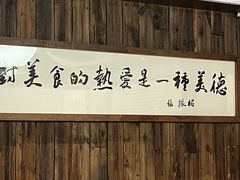 對美食的熱愛是一種美德
張振楣